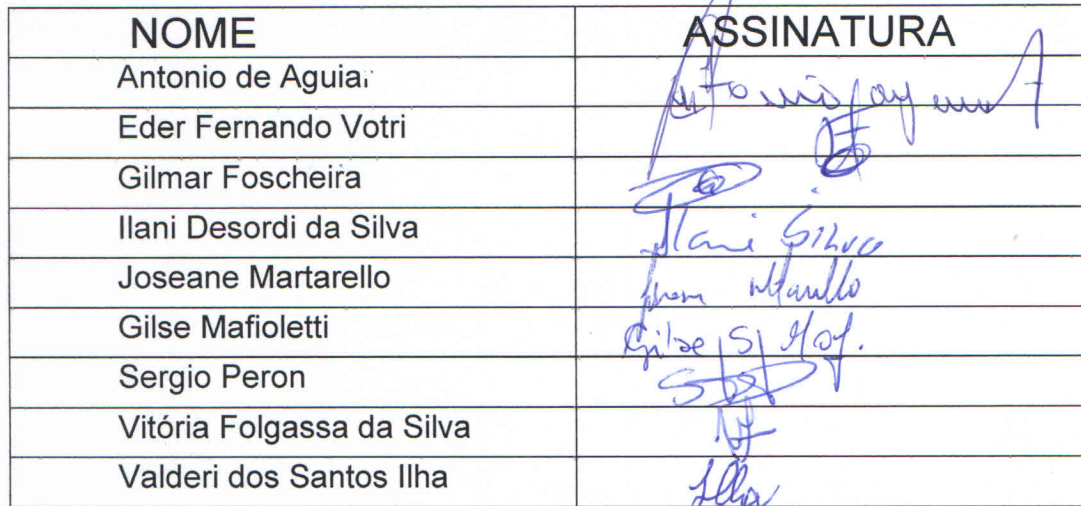 NOME ASSINATURA
Antonio de Aguiar
Eder Fernando Votri
Gilmar Foscheira
Ilani Desordi da Silva Ilani Silva
Joseane Martarello
Gilse Mafioletti Gilse S Maf.
Sergio Peron
Vitória Folgassa da Silva
Valderi dos Santos Ilha Ilha